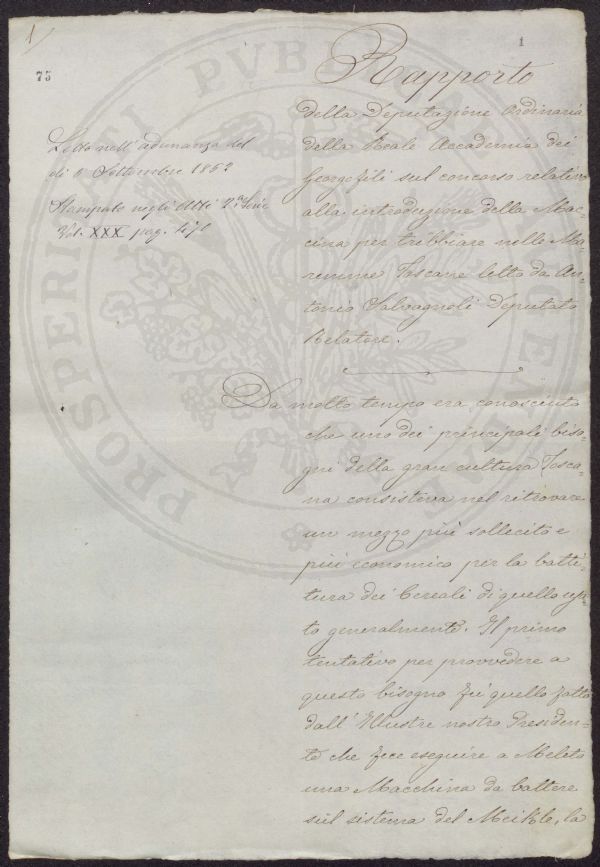 1
1
75
Rapporto
della Deputazione Ordinaria
della Reale Accademia dei
Georgofili sul concorso relativo
alla introduzione della Mac-
cina per tribbiare nelle Ma-
remme Toscane letto da An-
tonio Salvagnoli Deputato
Relatore.
Letto nell'adunanza del
dì Settembre 185
Stampato negli Atti 2da Serie
Vol. XXX pag. 471
Da molto tempo era conosciuto
che uno dei principali biso-
gni della gran cultura Tosca-
na consisteva nel ritrovare
un mezzo più sollecito e
più economico per la batti-
tura dei Cereali di quello usa
to generalmente. Il primo
tentativo per provvedere a
questo bisogno fù quello fatto
dall'Illustre nostro Presiden-
te che fece eseguire a Meleto
una Macchina da battere
sul sistema del Meikle, la
PROSPERITATI PVBLICAE